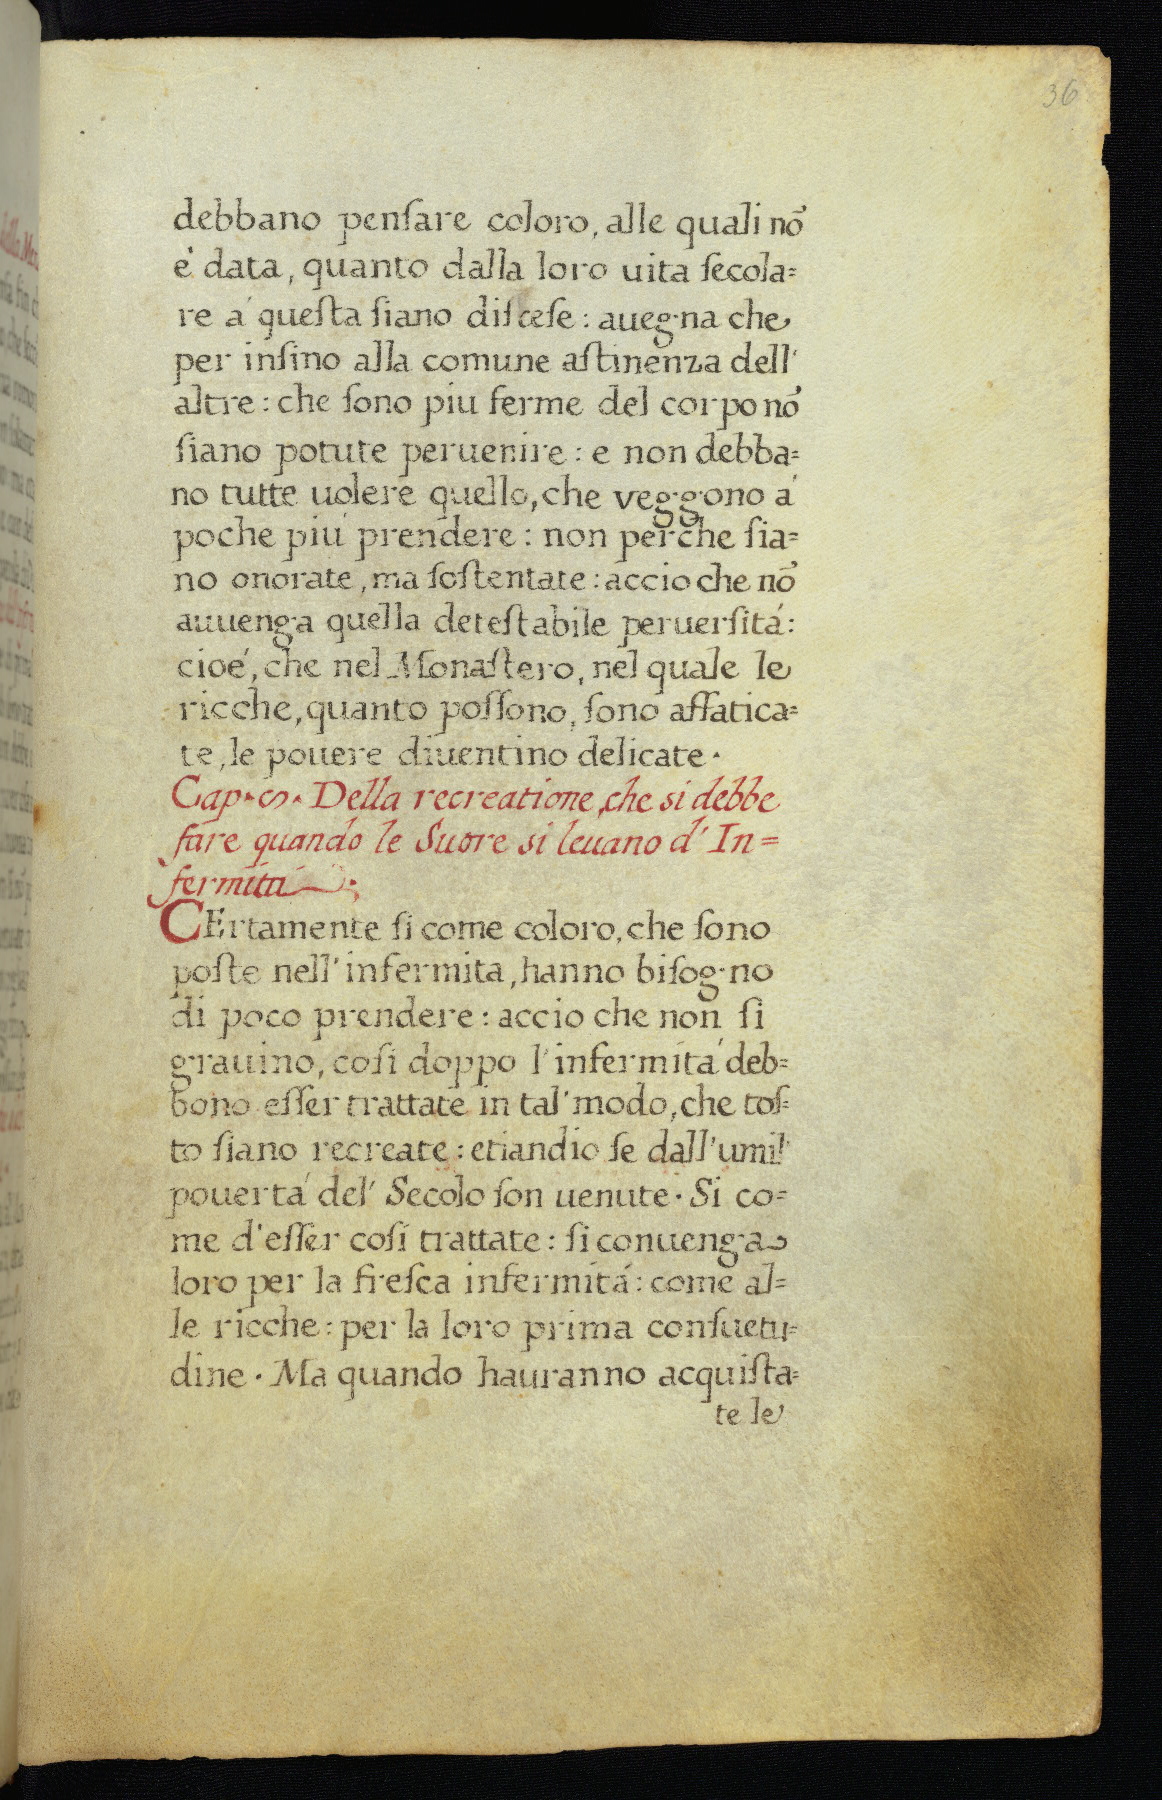 36
debbano penſare coloro, alle quali nõ
è data, quanto dalla loro uita ſecola=
re á queſta ſiano diſceſe: auegna che
per inſino alla comune aſtinenza dell'
altre: che ſono piu ferme del corpo nõ
ſiano potute peruenire: e non debba=
no tutte uolere quello, che veggono á
poche piú prendere: non perche ſia=
no onorate, ma ſoſtentate: accio che nõ
auuenga quella deteſtabile peruerſitá:
cioé, che nel Monaſtero, nel quale le
ricche, quanto poſſono, ſono affatica=
te, le pouere diuentino delicate.
Cap. Della recreatione, che si debbe
fare quando le Suore si leuano d' In=
fermitá.
CErtamente ſi come coloro, che ſono
poſte nell' infermita, hanno biſogno
di poco prendere: accio che non ſi
grauino, coſi doppo l' infermitá deb=
bono eſſer trattate in tal' modo, che toſ=
to ſiano recreate: etiandio ſe dall' umil'
pouertá del' Secolo ſon uenute. Si co=
me d'eſſer coſi trattate: ſi conuenga
loro per la freſca infermitá: come al=
le ricche: per la loro prima conſuetu=
dine. Ma quando hauranno acquiſta=
te le